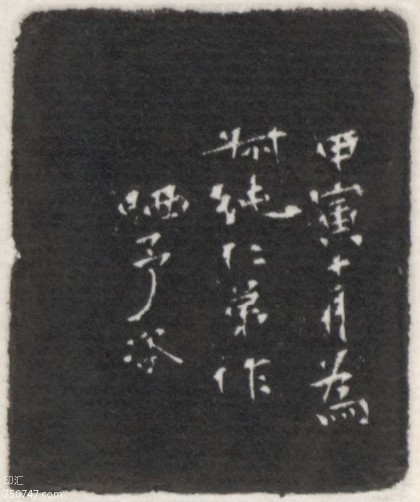 甲寅十月為
純仁弟作
予
印汇
750747.com